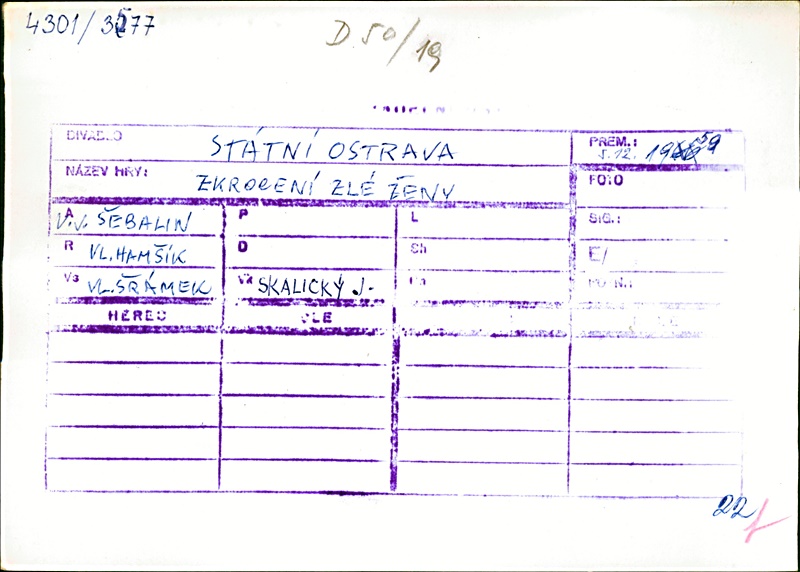 4301/3577
D 50/19
DIVADLO STÁTNÍ OSTRAVA
PREM.: 5.12. 1959
NÁZEV HRY: ZKROCENÍ ZLÉ ŽENY
FOTO
A V.J. ŠEBALIN P L SIG.:
R VL. HAMŠÍK D Ch E/
Vs VL. ŠRÁMEK Vk SKALICKÝ J.
HEREC
22